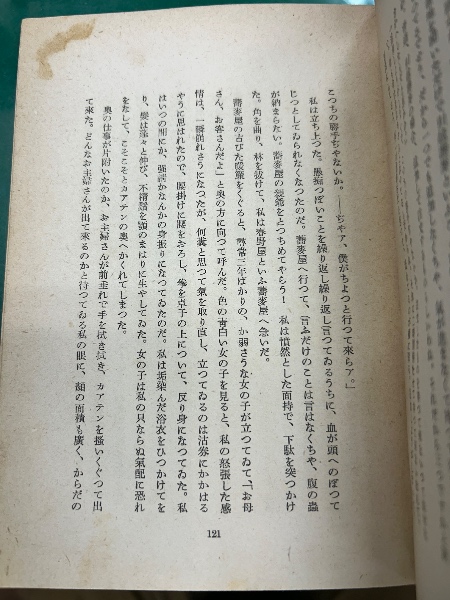 こつちの勝手ぢやないか。――ぢやア、僕がちよつと行つて來らア。」
私は立ち上つた。愚痴つぽいことを繰り返し繰り返し言つてゐるうちに、血が頭へのぼつて
じつとしてゐられなくなつたのだ。蕎麥屋へ行つて、言ふだけのことは言はなくちや、腹の蟲
が納まらない。蕎麥屋の親爺をとつちめてやらう！　私は憤然とした面持で、下駄を突つかけ
た。角を曲り、林を拔けて、私は春野屋といふ蕎麥屋へ急いだ。
蕎麥屋の古びた暖簾をくぐると、尋常三年ばかりの、か弱さうな女の子が立つてゐて「お母
さん、お客さんだよ」と奥の方に向つて呼んだ。色の青白い女の子を見ると、私の怒張した感
情は、一瞬崩れさうになつたが、何糞と思つて氣を取り直し、立つてゐるのは沽券にかかはる
やうに思はれたので、腰掛けに腰をおろし、拳を卓子の上について、反り身になつてゐた。私
はいつの間にか、強談かなんかの身振りになつてゐたのだ。私は垢染んだ浴衣をひつかけてを
り、髮は蓬々と伸び、不精鬚を頬のまはりに生やしてゐた。女の子は私の只ならぬ氣配に恐れ
をなして、こそこそとカアテンの奥へかくれてしまつた。
奥の仕事が片附いたのか、お主婦さんが前垂れで手を拭き拭き、カアテンを搔いくぐつて出
て來た。どんなお主婦さんが出て來るのかと待つてゐる私の眼に、顏の面積も廣く、からだの
121